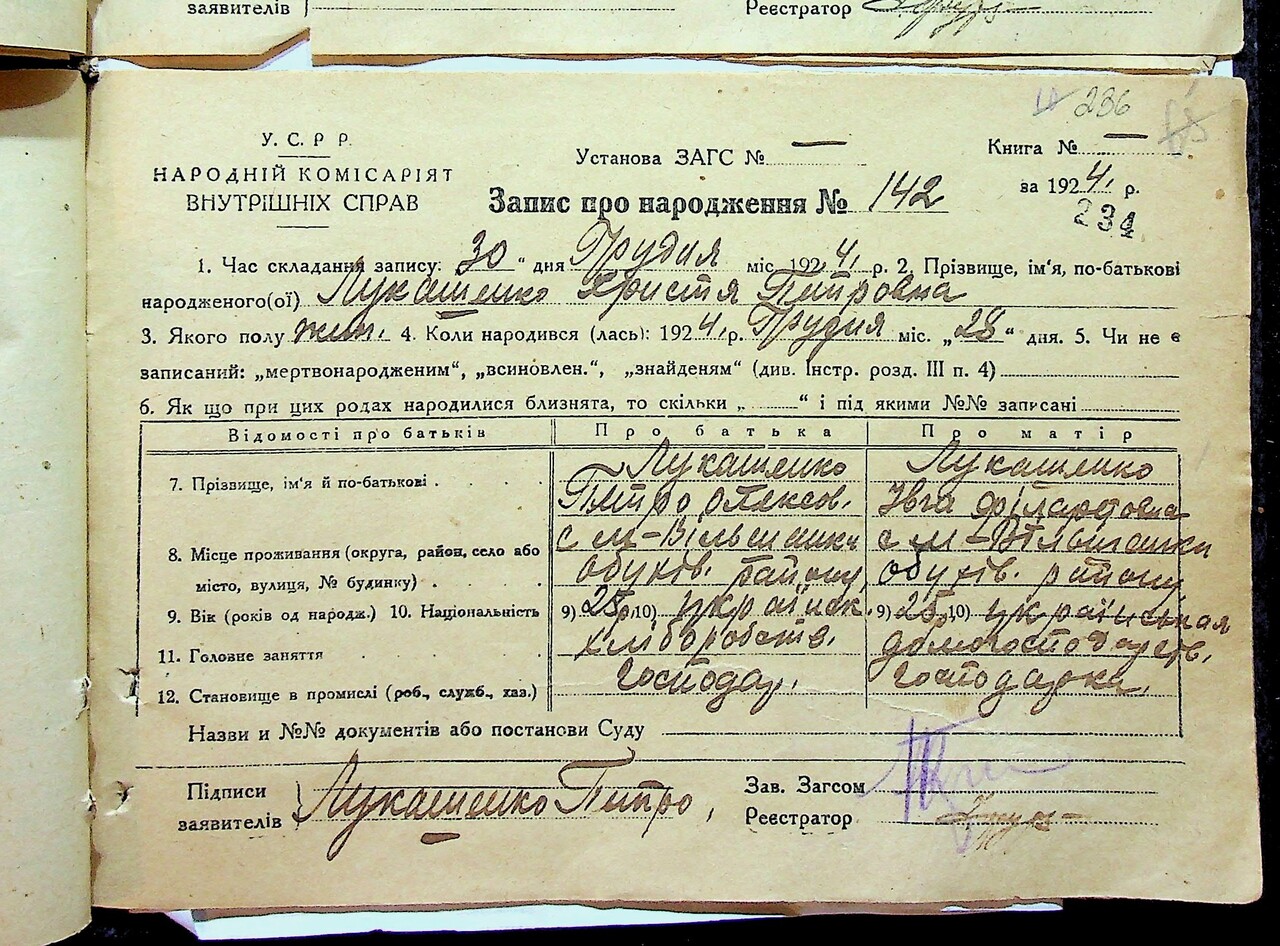 заявителів
Реєстратор
236
У. С. Р Р.
НАРОДНІЙ КОМІСАРІЯТ
ВНУТРІШНІХ СПРАВ
Установа ЗАГС № —
Книга № —
за 1924 р.
Запис про народження № 142
234
1. Час складання запису: „30“ дня Грудня міс. 1924. р. 2. Прізвище, ім'я, по-батькові
народженого(ої) Лукашенко Христя Петровна
3. Якого полу жін. 4. Коли народився (лась): 1924. р. Грудня міс. „28“ дня. 5. Чи не є
записаний: „мертвонародженим“, „всиновлен.“, „знайденям“ (див. Інстр. розд. III п. 4)
6. Як що при цих родах народилися близнята, то скільки „ “ і під якими №№ записані
Відомості про батьків Про батька Про матір
7. Прізвище, ім'я й по-батькові Лукашенко Лукашенко
Петро Олексов. Ївга Філаретовна
8. Місце проживання (округа, район, село або с М-Вільшанки с М-Вільшанки
місто, вулиця, № будинку) обухів. району обухів. району
9. Вік (років од народж.) 10. Національність 9) 25р. 10) українск. 9) 25. 10) українськая
11. Головне заняття хліборобств. домогосподарств.
12. Становище в промислі (роб., служб., хаз.) Господар. Господарка.
Назви и №№ документів або постанови Суду
Підписи
заявителів Лукашенко Петро,
Зав. Загсом
Реєстратор